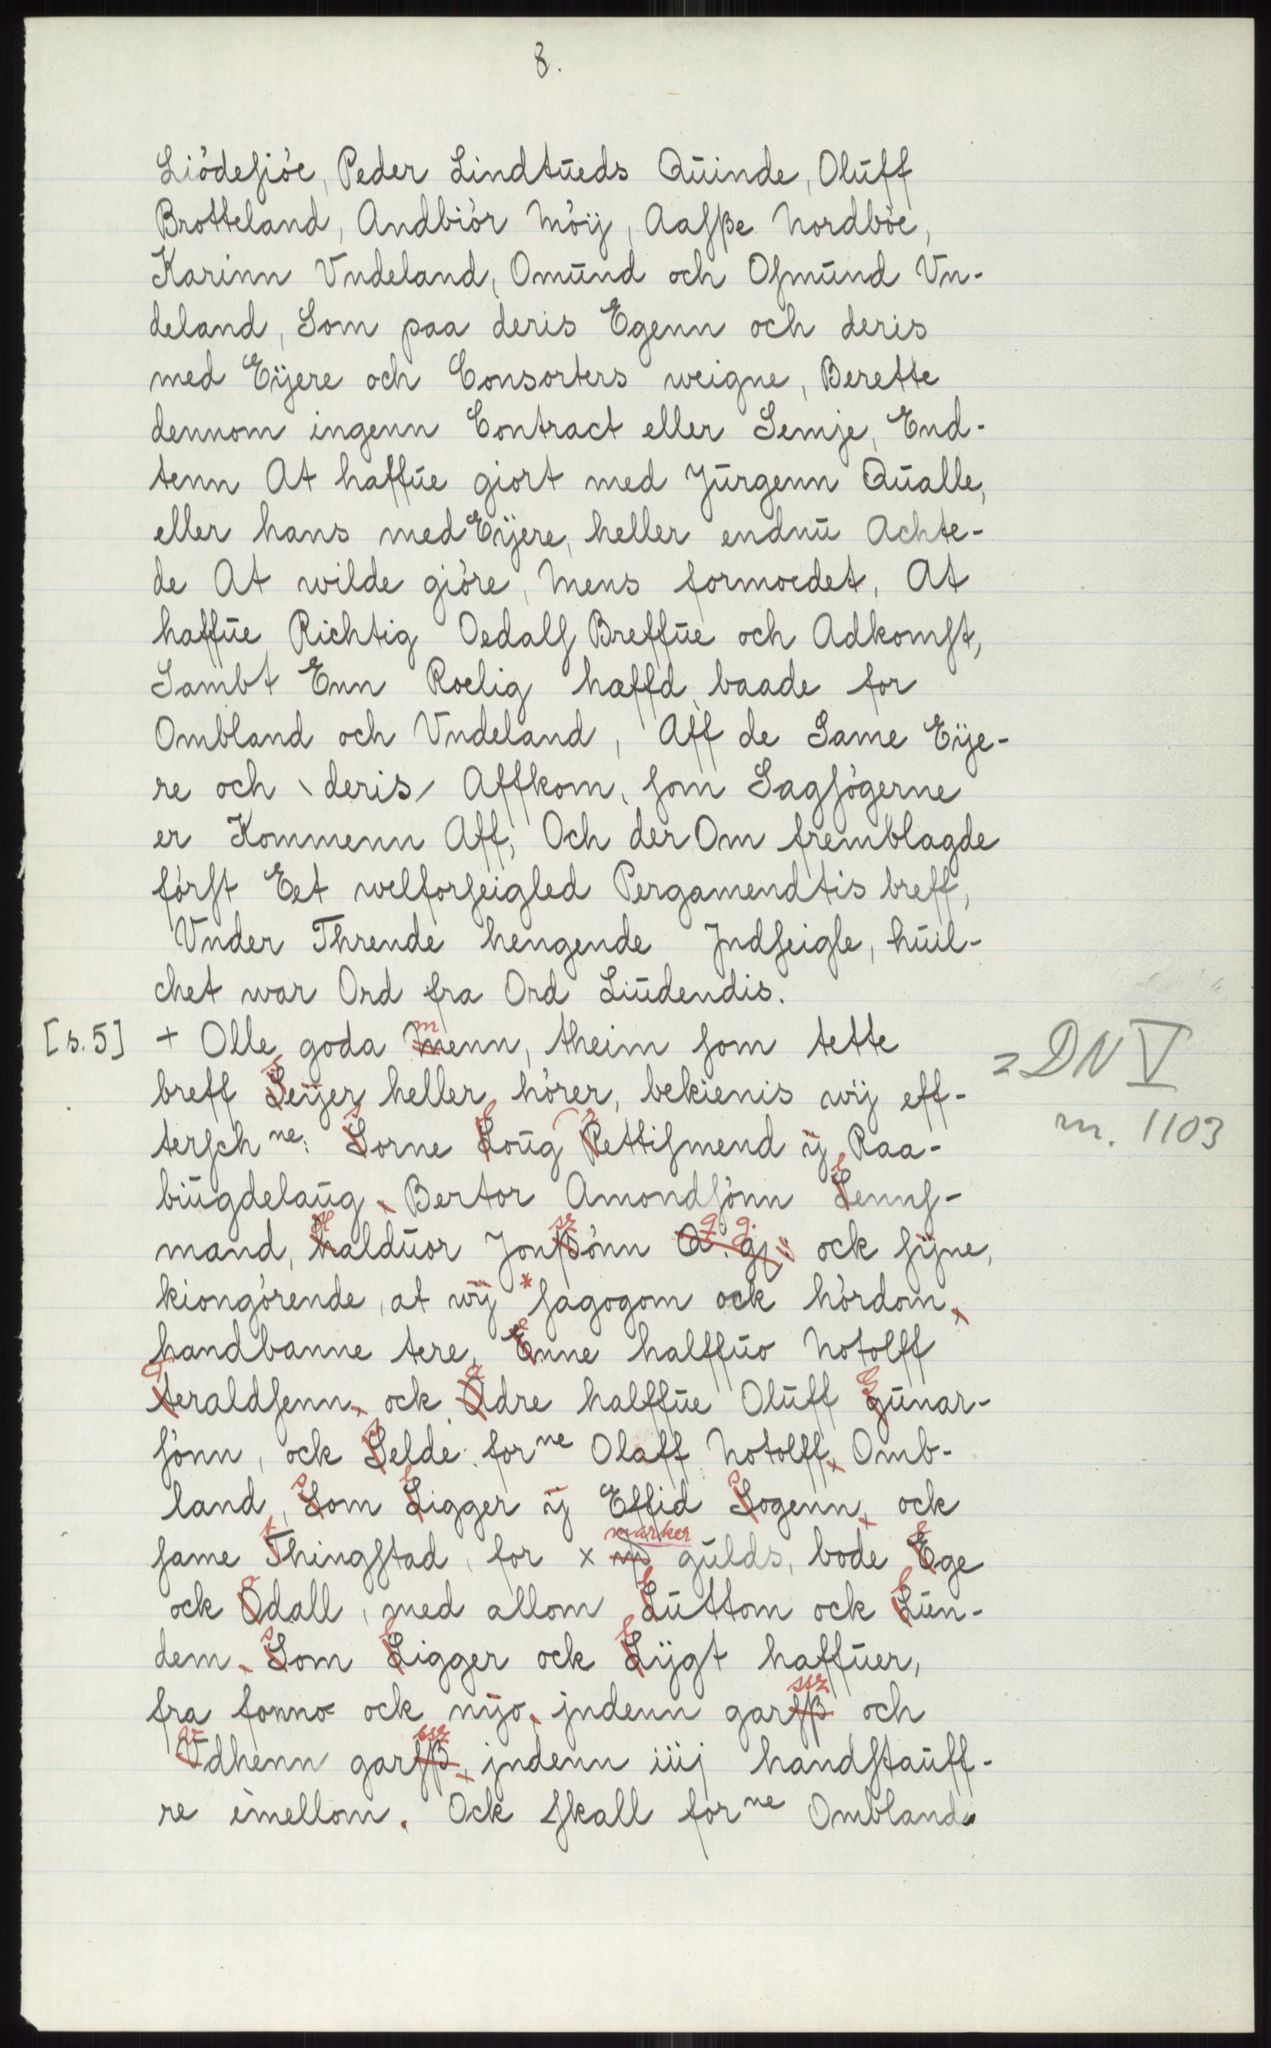 8.
Liódesióe, Peder Lindtueds Quinde, Oluff
Brotteland, Andbiór Móÿ, Aasße Nordbóe,
Karinn Vndeland, Omund och Osmund Vn-
deland, Som paa deris Egenn och deris
med Eÿere och Consorters weigne, Berette
dennom ingenn Contract eller Semje, End-
tenn At haffue giort med Jurgenn Qualle,
eller hans med Eÿere, heller endnu Achte-
de At wilde gióre, Mens formoedet, At
haffue Richtig Oedals Breffue och Adkomst,
Sambt Enn Roelig hæffd, baade for
Ombland och Vndeland, Aff de Same Eÿe-
re och \ deris / Affkom, som Sagsógerne
er Kommenn Aff, Och der Om fremblagde
fórst Eet welforseigled Pergamendtis breff,
Vnder Thrende hengende Jndseigle, huil-
chet war Ord fra Ord Liudendis.
[s. 5] + Olle goda menn, theim som tette
= DN V
breff Seÿer heller hórer, bekienis wÿ eff-
n. 1103
tersch ne: Sorne Loug Rettismend ÿ Raa-
biugdelaug, Bertor Amondsónn Lenns-
mand, Halduor Jonszónn A. g. ock sÿne,
kiongórende, at wÿ *sagogom ock hórdom,
handbanne tere, Enne halffuo Notolff
Teraldsenn, ock Adre halffue Oluff Gunar-
sónn, ock Selde for ne Olaff Notolff, Omb-
land, Som Ligger ÿ Effid Sogenn, ock
same Thingstad, for x marker gulds, bode Ege
ock Odall, med allom Luttom ock Lun-
dem, Som Ligger ock Lÿgt haffuer,
fra fonno ock nÿo, jndenn garssz och
Vdhenn garssz, jndenn iiij handstauff-
re imellom. Ock skall for ne Ombland